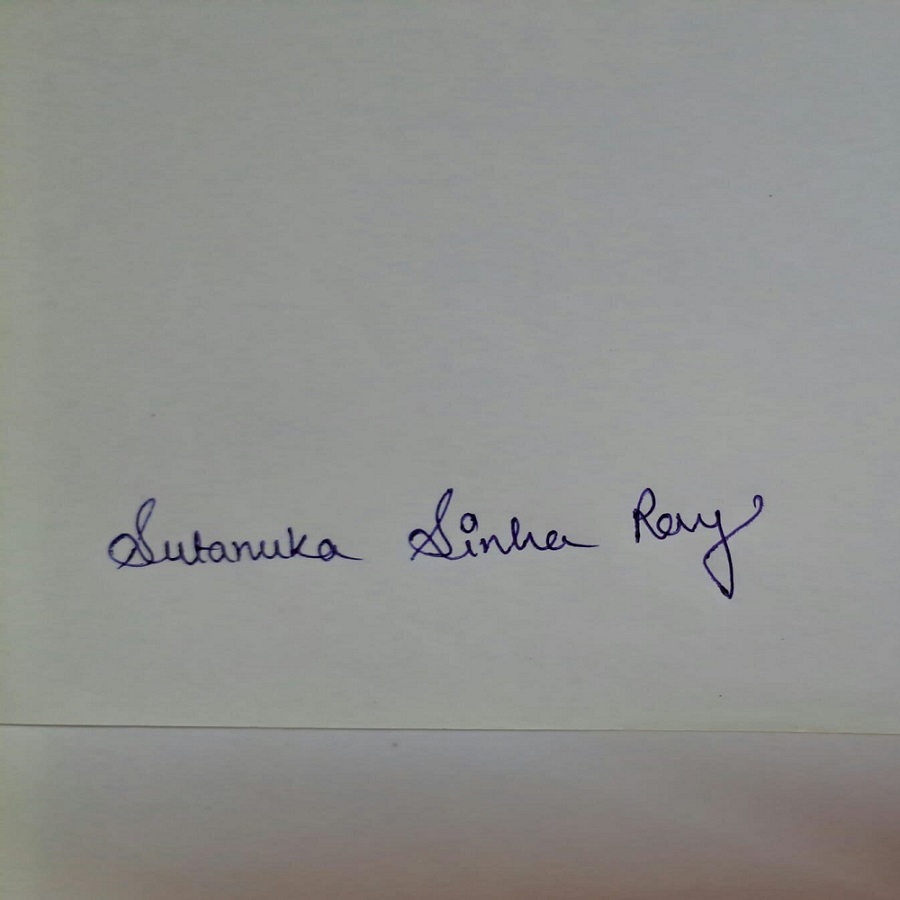 Sutanuka Sinha Ray